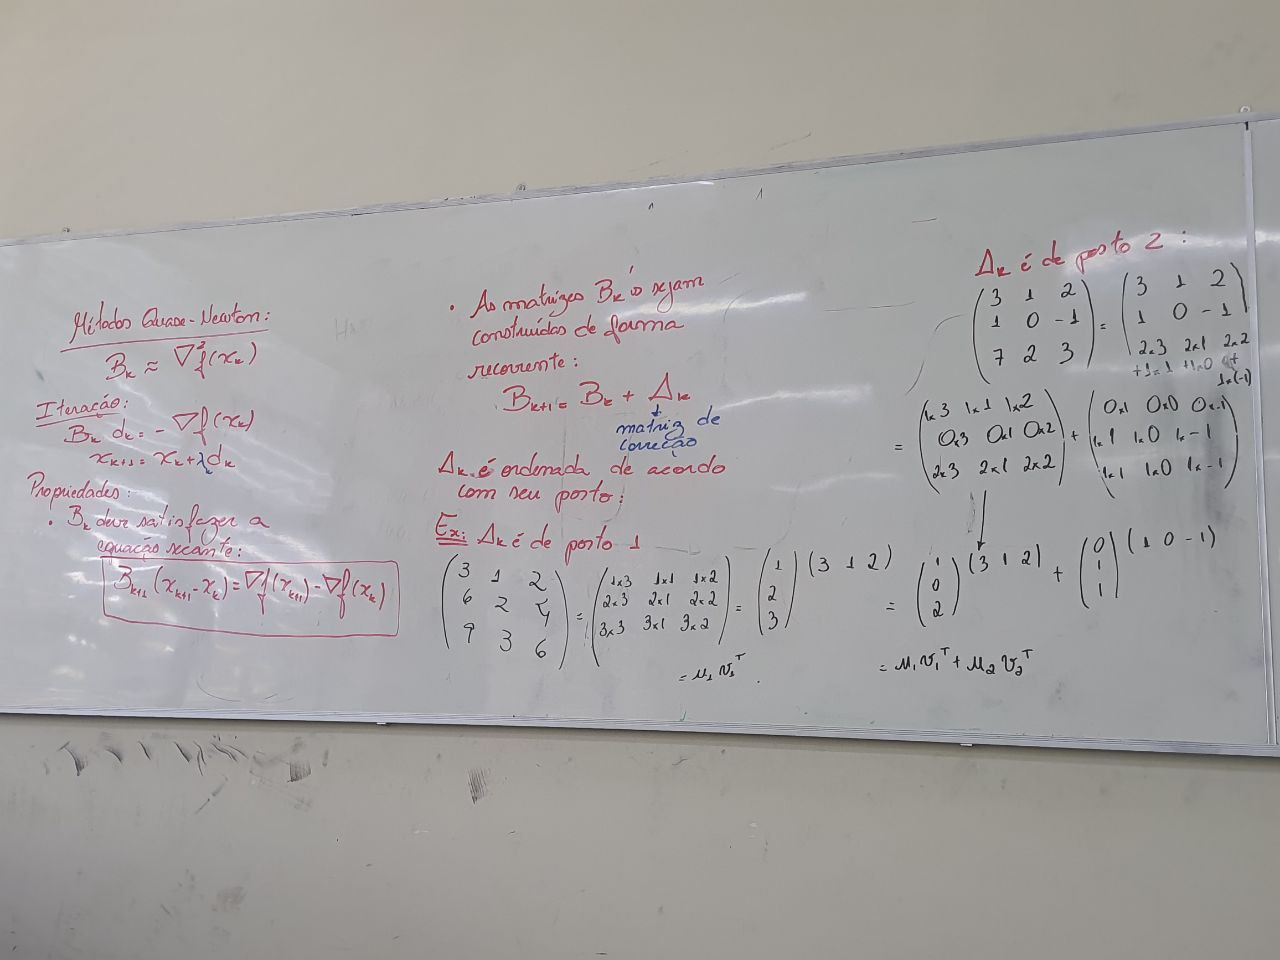 Métodos Quase-Newton:
B_k ≈ ∇²f(x_k)
Iteração:
B_k d_k = - ∇f(x_k)
x_{k+1} = x_k + λ_k d_k
Propriedades:
• B_k deve satisfazer a
equação secante:
B_{k+1}(x_{k+1} - x_k) = ∇f(x_{k+1}) - ∇f(x_k)
• As matrizes B_k's sejam
construídas de forma
recorrente:
B_{k+1} = B_k + Δ_k
matriz de
correção
Δ_k é ordenada de acordo
com seu posto:
Ex: Δ_k é de posto 1
(3 1 2; 6 2 4; 9 3 6) = (1x3 1x1 1x2; 2x3 2x1 2x2; 3x3 3x1 3x2) = (1; 2; 3) (3 1 2)
= u_1 v_1^T.
Δ_k é de posto 2:
(3 1 2; 1 0 -1; 7 2 3) = (3 1 2; 1 0 -1; 2x3+1x1 2x1+1x0 2x2+1x(-1))
= (1x3 1x1 1x2; 0x3 0x1 0x2; 2x3 2x1 2x2) + (0x1 0x0 0x-1; 1x1 1x0 1x-1; 1x1 1x0 1x-1)
= (1; 0; 2) (3 1 2) + (0; 1; 1) (1 0 -1)
= u_1 v_1^T + u_2 v_2^T